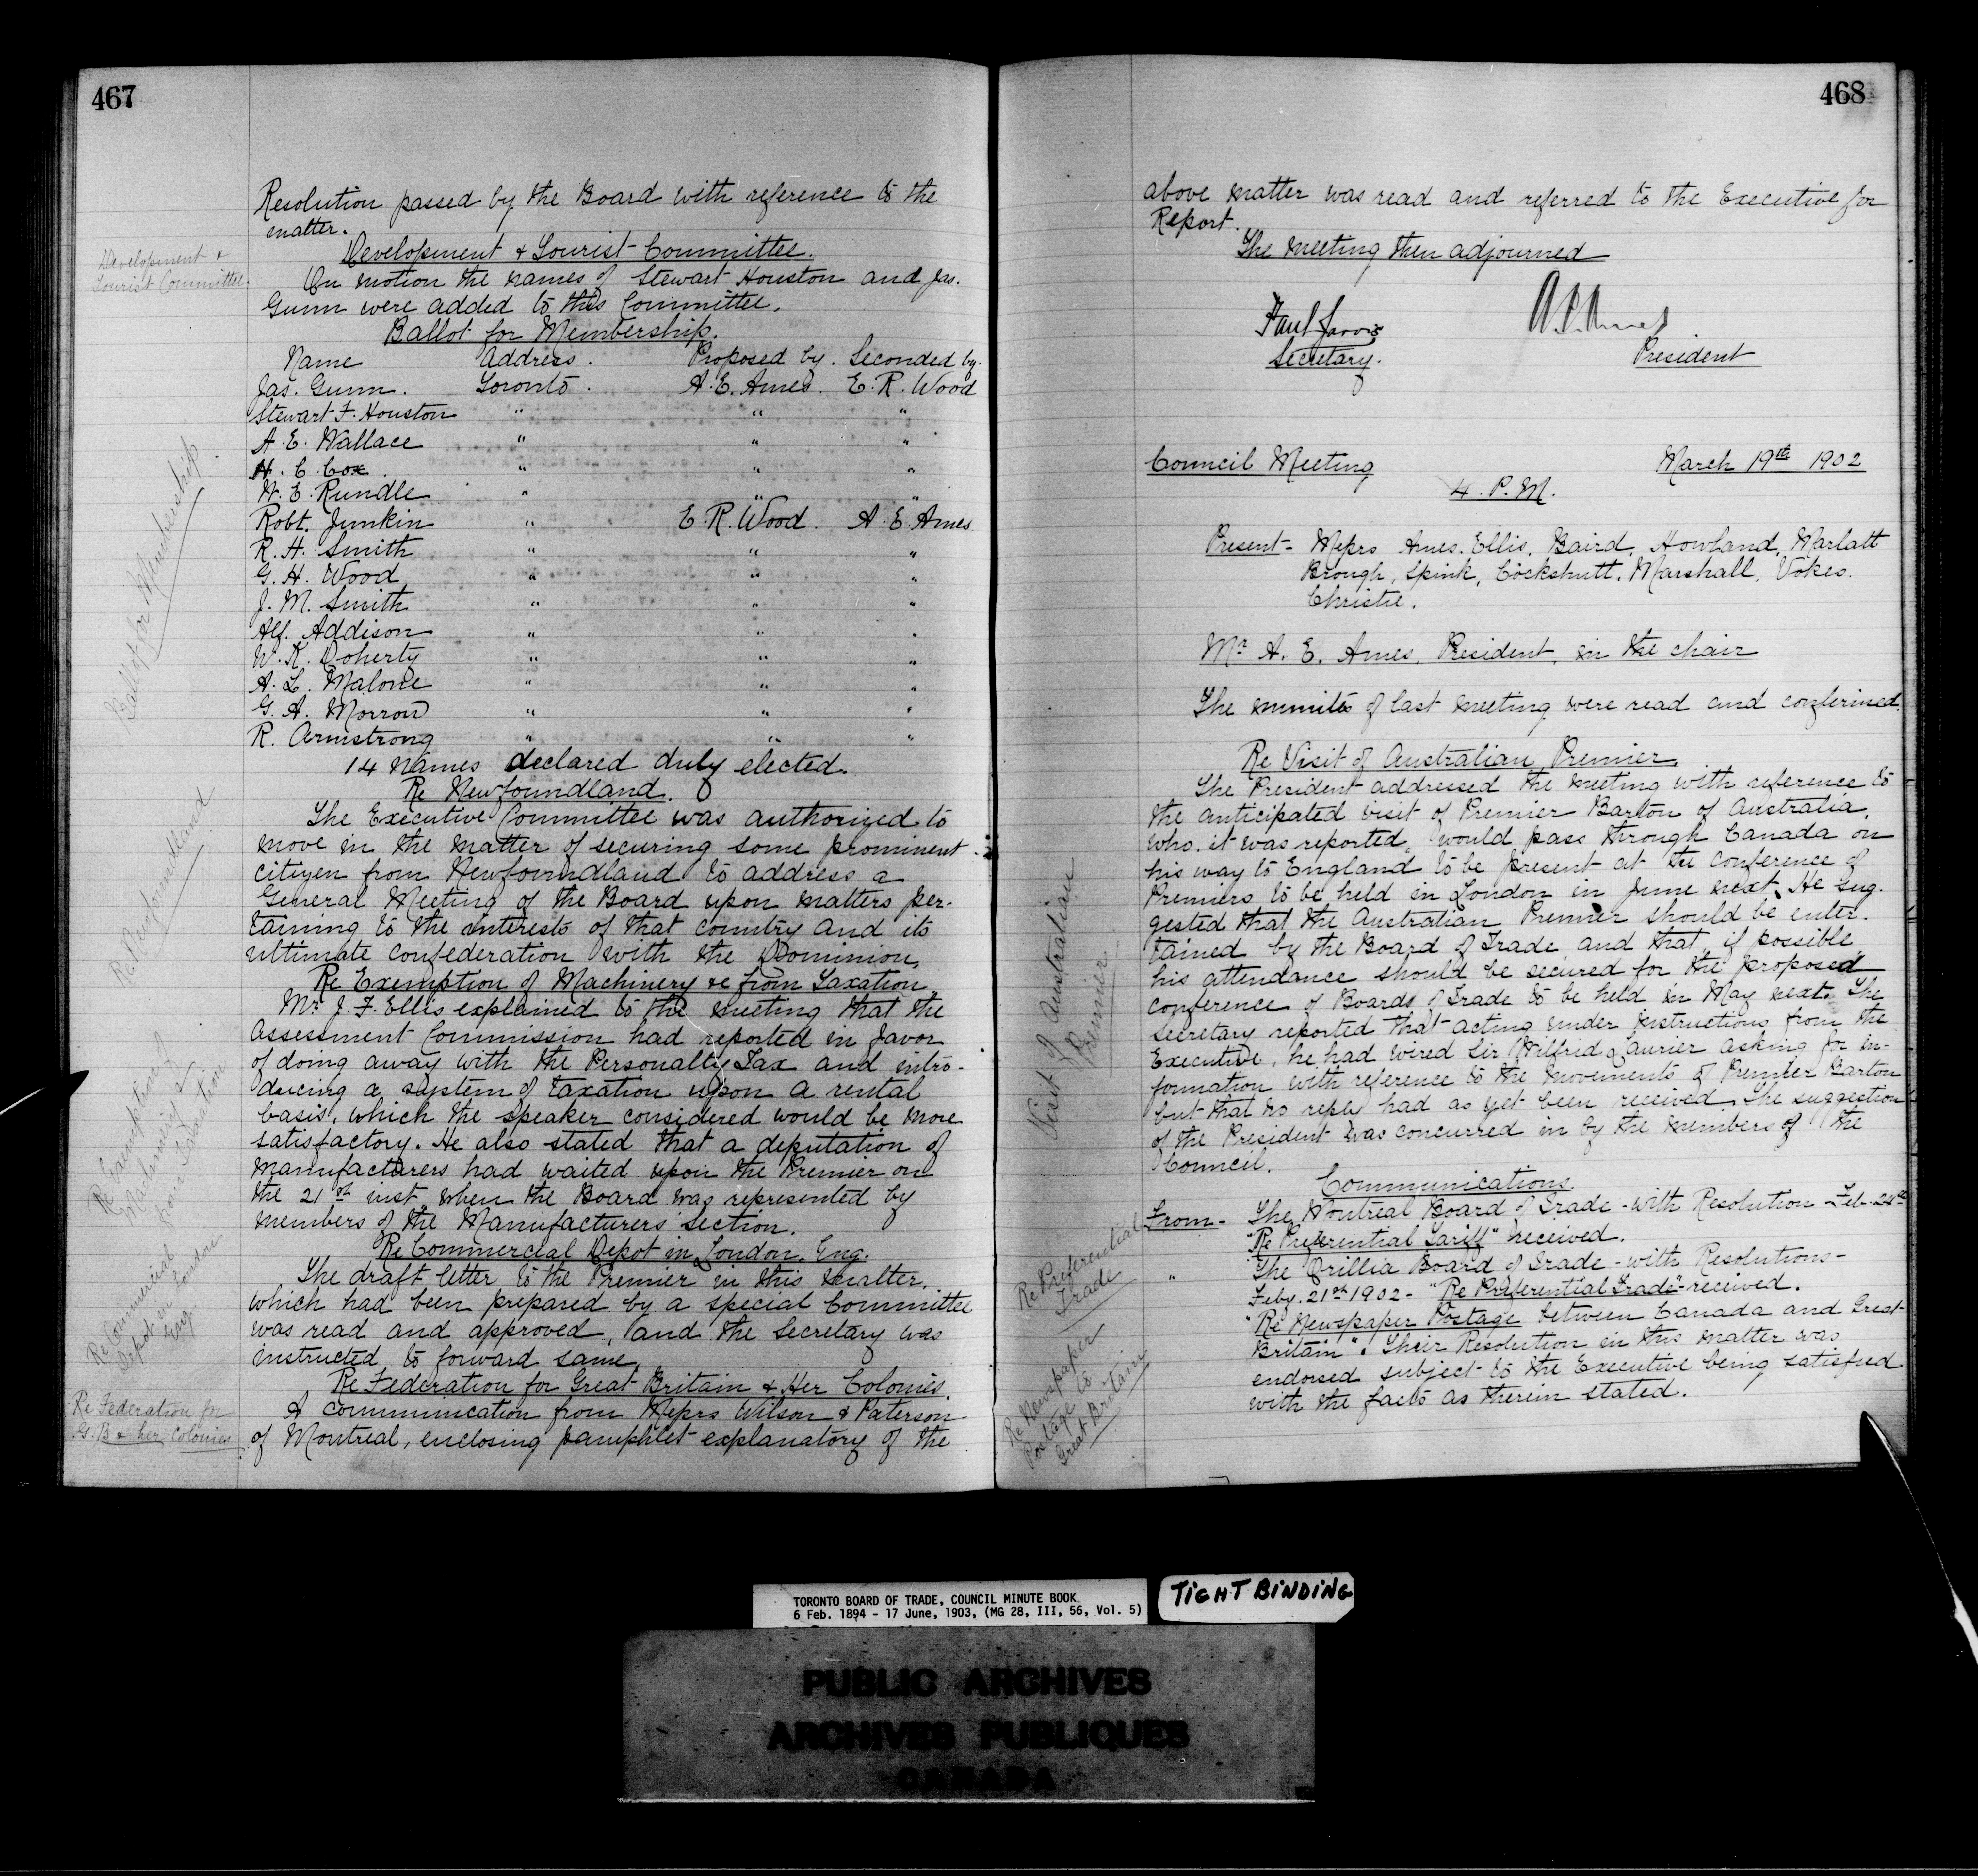 467
Resolution passed by the Board with reference to the
matter.
Development & Tourist Committee.
Development &
Tourist Committee.
On motion the names of Stewart Houston and Jas.
Gunn were added to this Committee.
Ballot for Membership.
Ballot for Membership
Name Address. Proposed by. Seconded by.
Jas. Gunn. Toronto. A. E. Ames. E. R. Wood
Stewart F. Houston " " "
A. E. Wallace " " "
H. C. Cox. " " "
W. E. Rundle " " "
Robt. Junkin " E. R. Wood. A. E. Ames
R. H. Smith " " "
G. H. Wood " " "
J. M. Smith " " "
Alf. Addison " " "
W. K. Doherty " " "
A. L. Malone " " "
G. A. Morrow " " "
R. Armstrong " " "
14 names declared duly elected.
Re Newfoundland.
Re Newfoundland
The Executive Committee was authorized to
move in the matter of securing some prominent
citizen from Newfoundland to address a
General Meeting of the Board upon matters per-
taining to the interests of that country and its
ultimate confederation with the Dominion.
Re Exemption of Machinery &c from Taxation
Re Exemption of
Machinery &
from Taxation
Mr. J. F. Ellis explained to the meeting that the
Assessment Commission had reported in favor
of doing away with the Personalty Tax and intro-
ducing a system of taxation upon a rental
basis, which the speaker considered would be more
satisfactory. He also stated that a deputation of
manufacturers had waited upon the Premier on
the 21st inst. when the Board was represented by
members of the Manufacturers Section.
Re Commercial Depot in London, Eng.
Re Commercial
Depot in London
Eng
The draft letter to the Premier in this matter,
which had been prepared by a special Committee
was read and approved, and the Secretary was
instructed to forward same.
Re Federation for Great Britain & Her Colonies.
Re Federation for
G. B & her Colonies
A communication from Messrs Wilson & Paterson
of Montreal, enclosing pamphlet explanatory of the
468
above matter was read and referred to the Executive for
Report.
The meeting then adjourned
Paul Jarvis
Secretary. President
Council Meeting March 19th 1902
4. P. M.
Present - Messrs Ames. Ellis, Baird, Howland, Marlatt
Brough, Spink, Cockshutt, Marshall, Vokes.
Christie.
Mr A. E. Ames, President, in the chair
The minutes of last meeting were read and confirmed.
Re Visit of Australian Premier
Visit of Australian
Premier
The President addressed the meeting with reference to
the anticipated visit of Premier Barton of Australia,
who, it was reported, would pass through Canada on
his way to England to be present at the Conference of
Premiers to be held in London in June next. He sug-
gested that the Australian Premier should be enter-
tained by the Board of Trade and that, if possible
his attendance should be secured for the proposed
conference of Boards of Trade to be held in May next. The
Secretary reported that acting under instructions from the
Executive, he had wired Sir Wilfrid Laurier asking for in-
formation with reference to the movements of Premier Barton
but that no reply had as yet been received. The suggestion
of the President was concurred in by the members of the
Council.
Communications
From - The Montreal Board of Trade - with Resolution - Feb. 24th
Re Preferential
Trade
"Re Preferential Tariff" received.
" The Orillia Board of Trade - with Resolutions -
Feby. 21st 1902 - "Re Preferential Trade" - received.
"Re Newspaper Postage between Canada and Great
Re Newspaper
Postage to
Great Britain
Britain". Their Resolution in this matter was
endorsed subject to the Executive being satisfied
with the facts as therein stated.
TORONTO BOARD OF TRADE, COUNCIL MINUTE BOOK
6 Feb. 1894 - 17 June, 1903, (MG 28, III, 56, Vol. 5)
TIGHT BINDING
PUBLIC ARCHIVES
ARCHIVES PUBLIQUES
CANADA